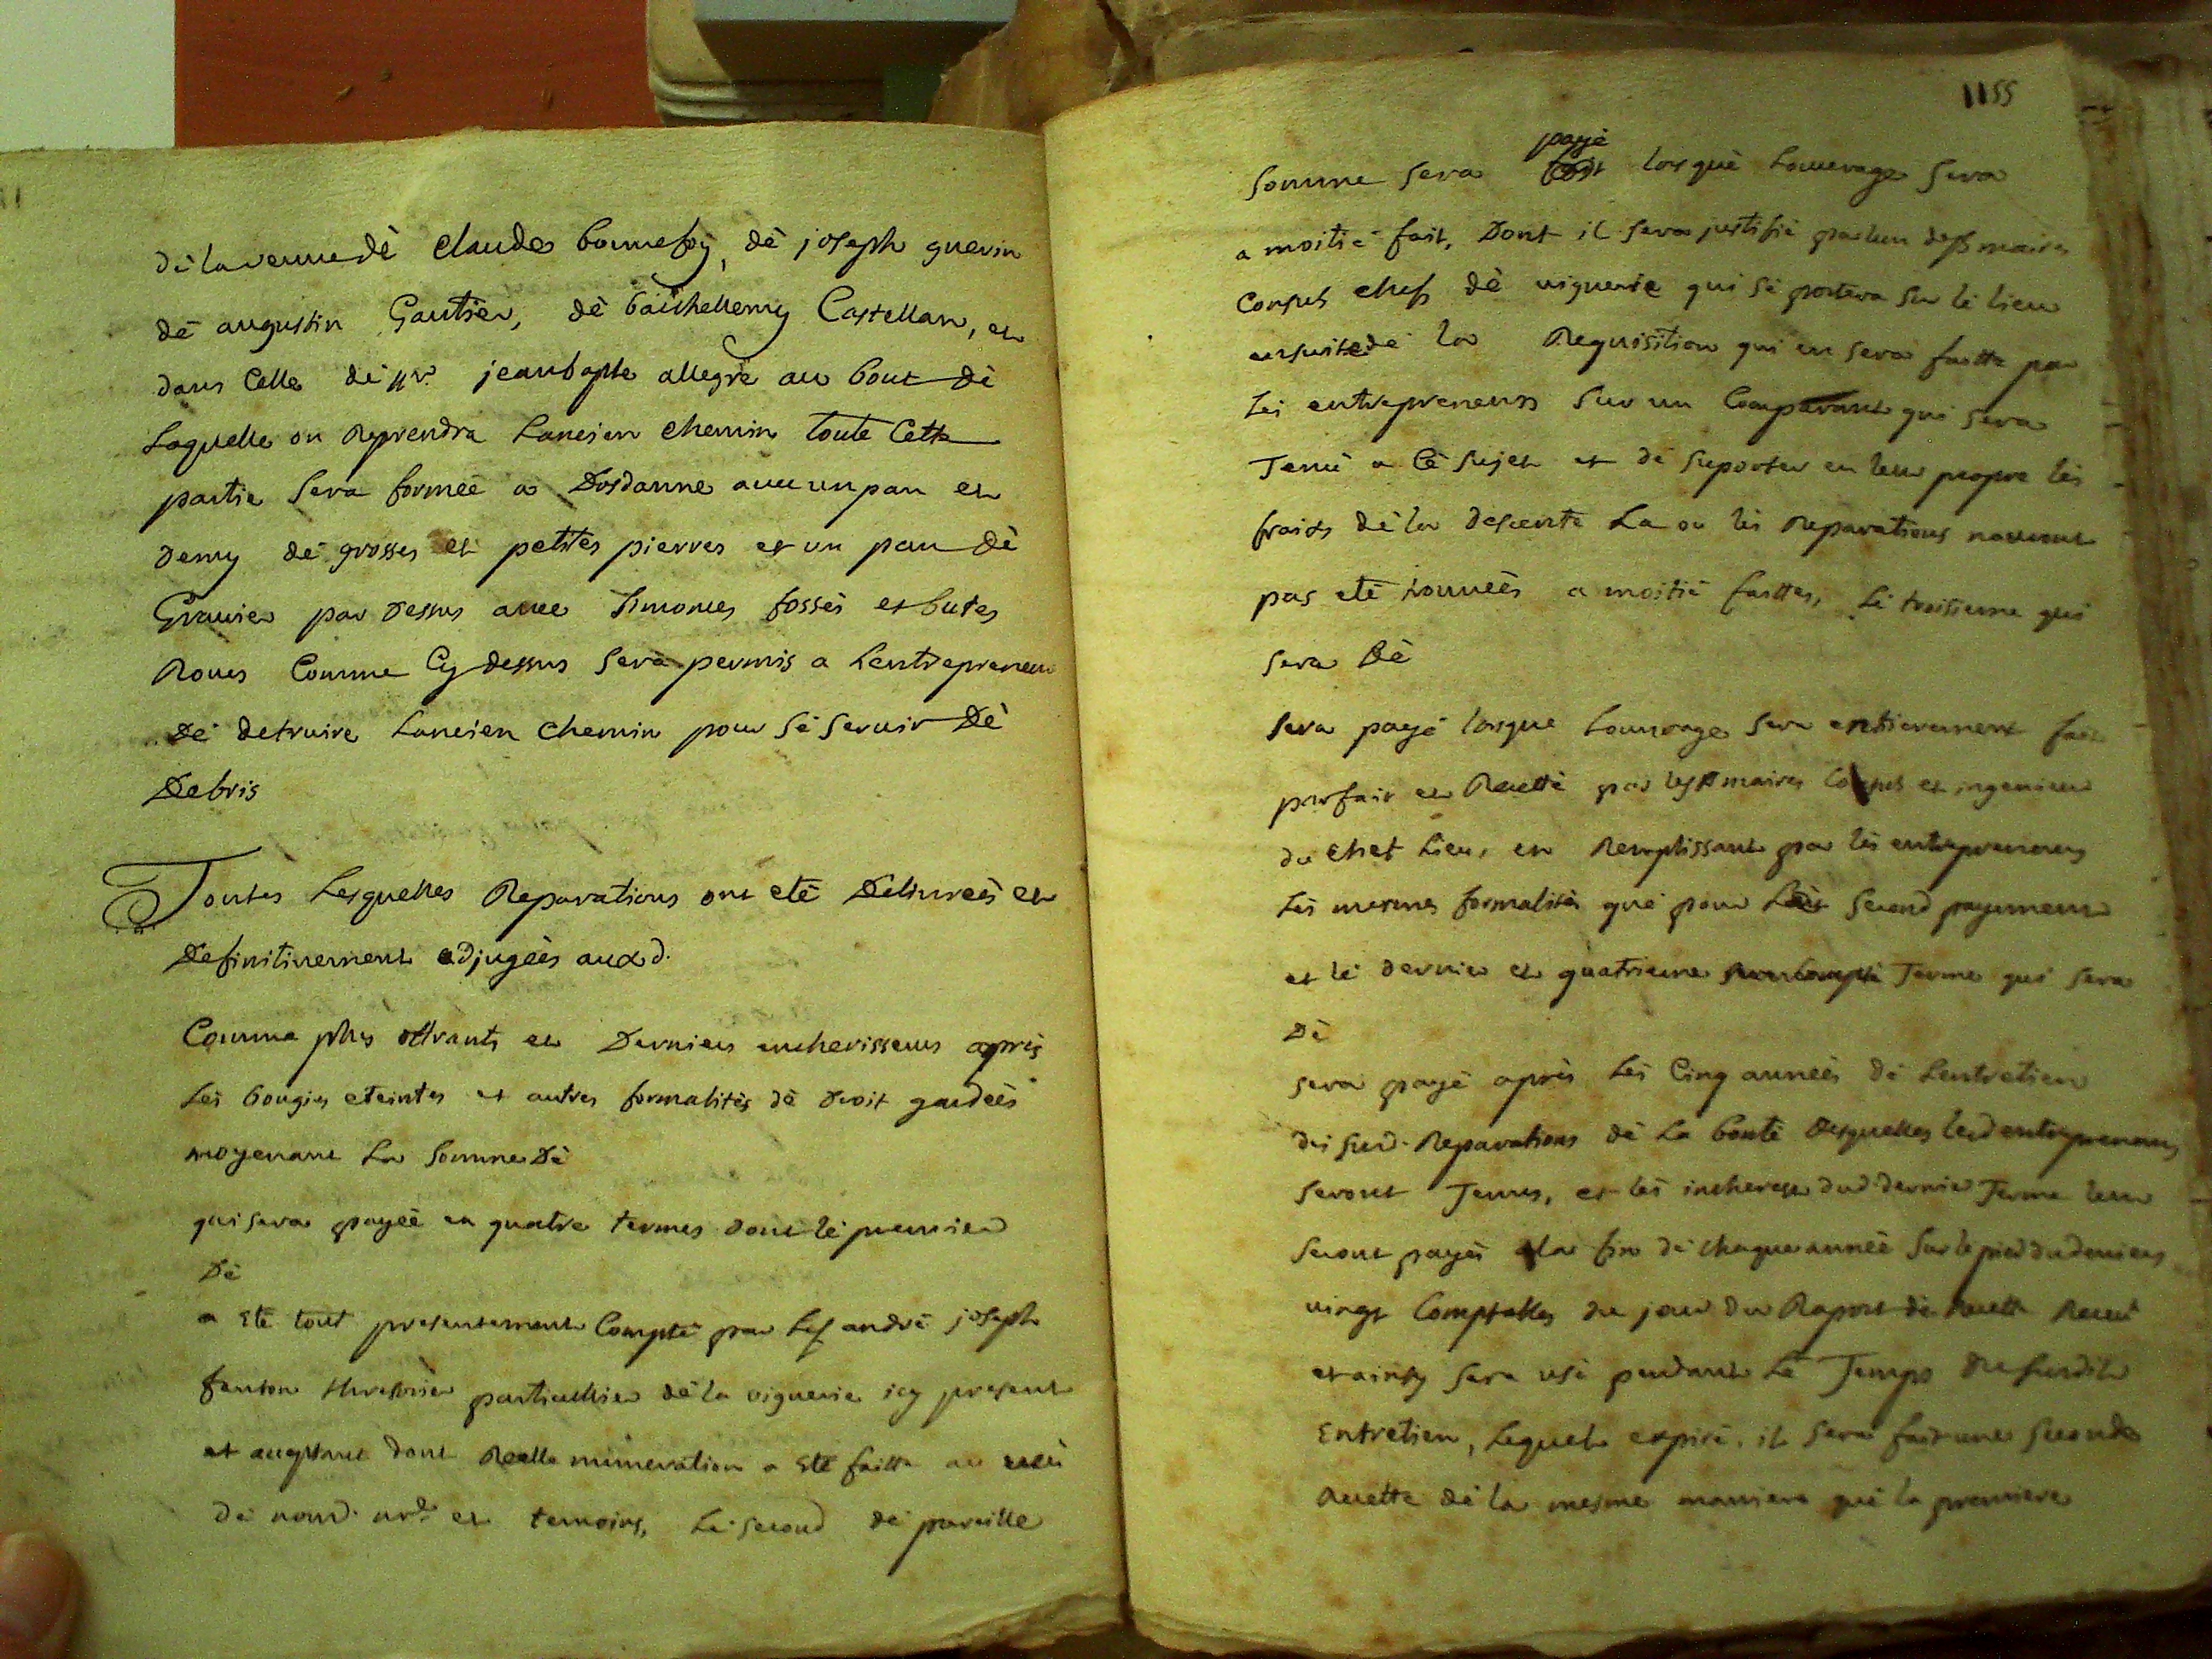 dè la veuve dè Claude bonnefoy, dè joseph guerin
dè augustin Gautier, dè barthellemy Castellan, et
dans Celle dè Mr. jean bapte allegre au bout dè
Laquelle on Reprendra Lancien chemin toute Cette
partie Sera formeè a Dosdanne avec un pan et
demy dè grosses et petites pierres et un pan dè
Gravier par dessus avec timones fossès et butes
Roues Comme Cy dessus Sera permis a Lentrepreneur
dè detruire Lancien chemin pour Sè Servir dè
Debris
Toutes Lesquelles Reparations ont etè Delivreès et
Definitivement adjugeès auxd.
Comme plus offrants et Derniers encherisseurs après
Lès bougies eteintes et autres formalitès dè droit gardeès
moyenant La Somme Dè
qui Sera payeè en quatre termes dont lè premier
Dè
a Etè tout presentement Comptè par Le Sr andrè joseph
fanton threzorier particulhier dè la viguerie icy present
et acceptant dont Reelle numeration a Etè faitte au veu
dè nousd. nre et temoins, Lè second dè pareille
1155
payè
Somme Sera lorsquè Louvrage Sera
a moitiè fait, Dont il Sera justifiè par lun des Srs maires
Consuls chefs dè viguerie qui Sè portera Sur lè lieu
ensuite dè la Requisition qui en Sera faitte par
Lès entrepreneurs Sur un Comparant qui Sera
Tenù a Cè Sujet et dè Suporter en leur propre lès
fraits dè la descente La ou lès Reparations nauront
pas etè trouveès a moitiè faittes, Lè troisieme qui
Sera Dè
Sera payè lorsque Louvrage Sera entierement fait
parfait et Recettè par les Srs maires Consuls et ingenieur
du chef Lieu, en Remplissant par lès entrepreneurs
Lès mesmes formalitès què pour Lè Second payement
et lè dernier et quatrieme Terme qui Sera
Dè
Sera payè après Lès Cinq annèès dè Lentretien
des Susd. Reparations dè La bontè desquelles lesd entrepreneurs
Seront Tenus, et lès interests dud. dernier Terme leur
Seront payès a la fin dè chaque annèè Sur le pied du deniers
vingt Comptables du jour du Raport dè Recette
et ainsy Sera usè pendant Lè Temps du Susdit
Entretien, Lequel expirè, il Sera fait une Seconde
Recette dè la mesme maniere què la premiere